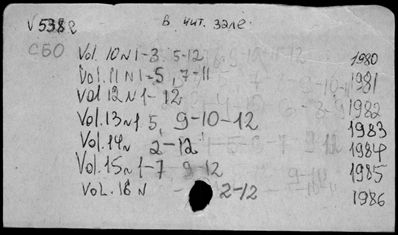 V 5382 в чит. зале.
СБО Vol. 10 N 1-3, 5-12 1980
Vol. 11 N 1-5, 7-11 1981
Vol 12 N 1-12 1982
Vol. 13 N 1, 5, 9-10-12 1983
Vol. 14 N 2-12 1984
Vol. 15 N 1-7 9-12 1985
Vol. 16 N 2-12 1986